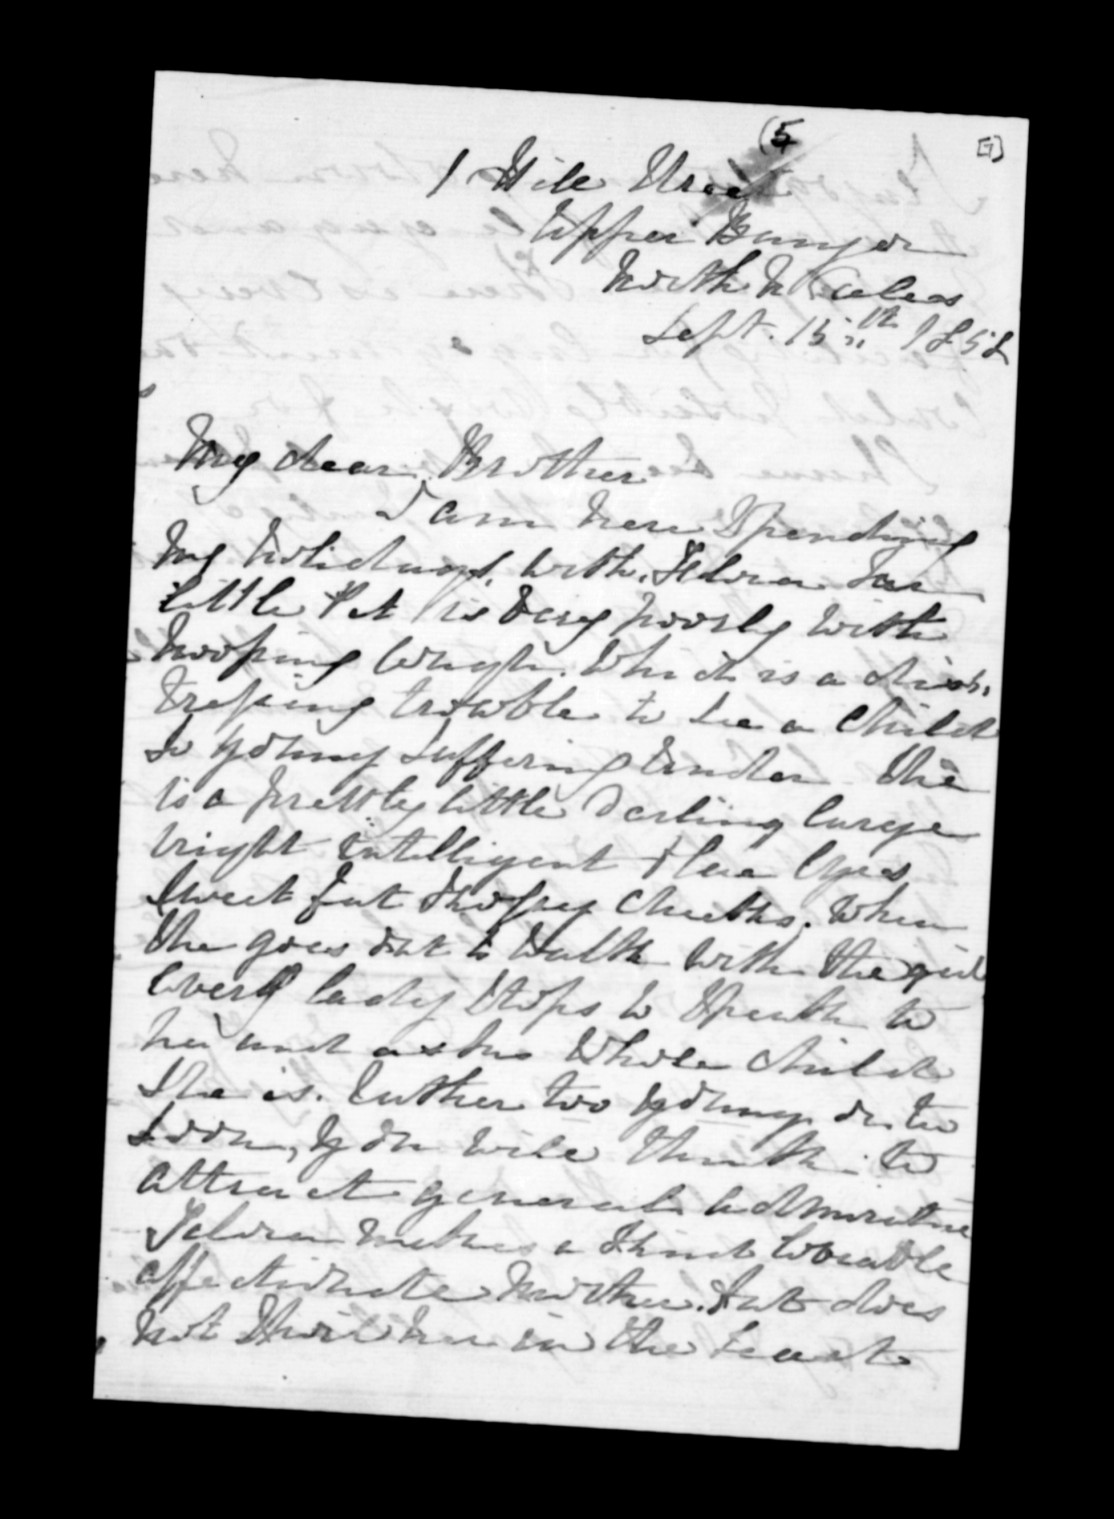 (5
[7]
1 Hill Street
Upper Bangor
North Wales
Sept. 15th 1858
My dear Brother
I am here spending
my holidays. with.
little Pet is very poorly with
hooping Cough. Which is a dis-
tressing trouble to see a child
so young suffering under She
is a pretty little Darling large
bright intelligent blue Eyes
sweet fat rosy Cheeks. When
she goes out to Walk with the girl
every lady stops to speak to
her and asks Whose child
she is. Rather too young or too
soon, you will think to
attract general admiration
makes a kind loveable
affectionate Mother. but does
not spoil her in the least